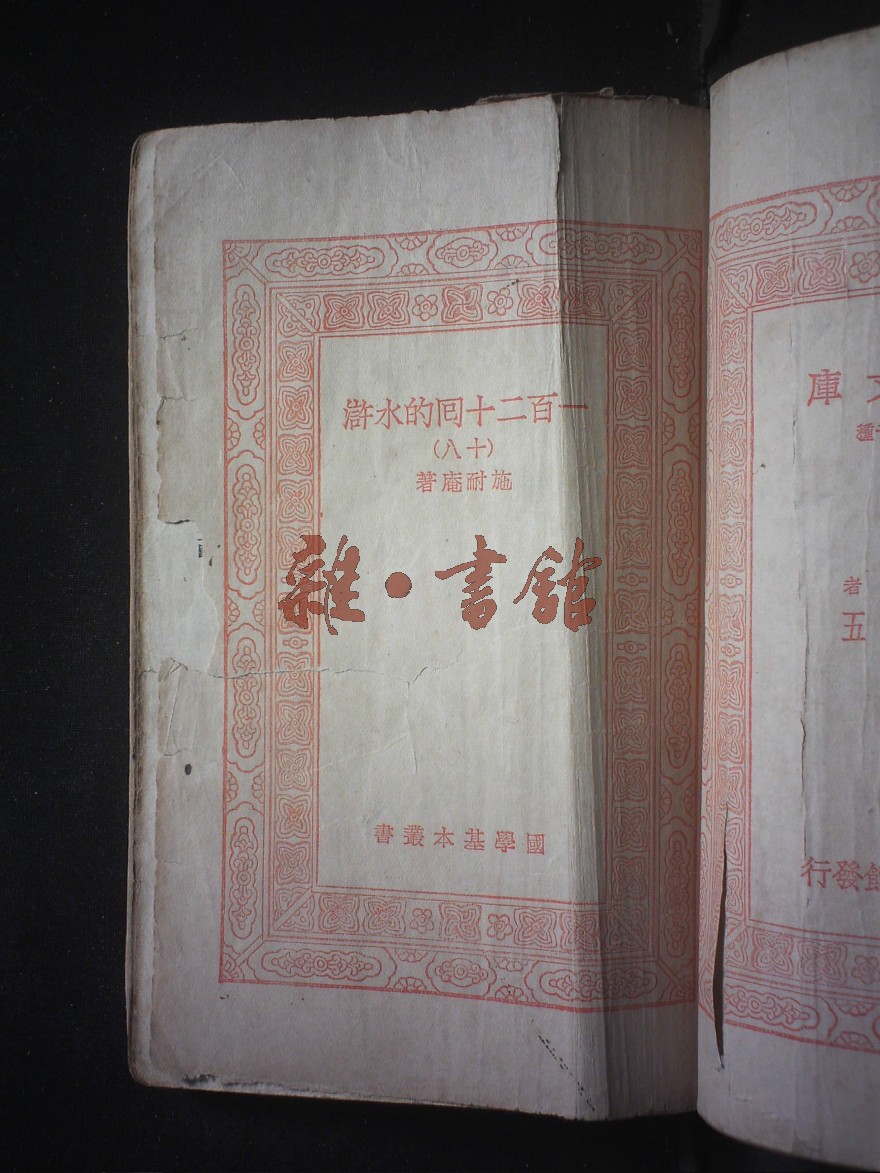 一百二十囘的水滸
(十八)
施耐庵著
雜·書館
國學基本叢書
庫
種
者
五
發行